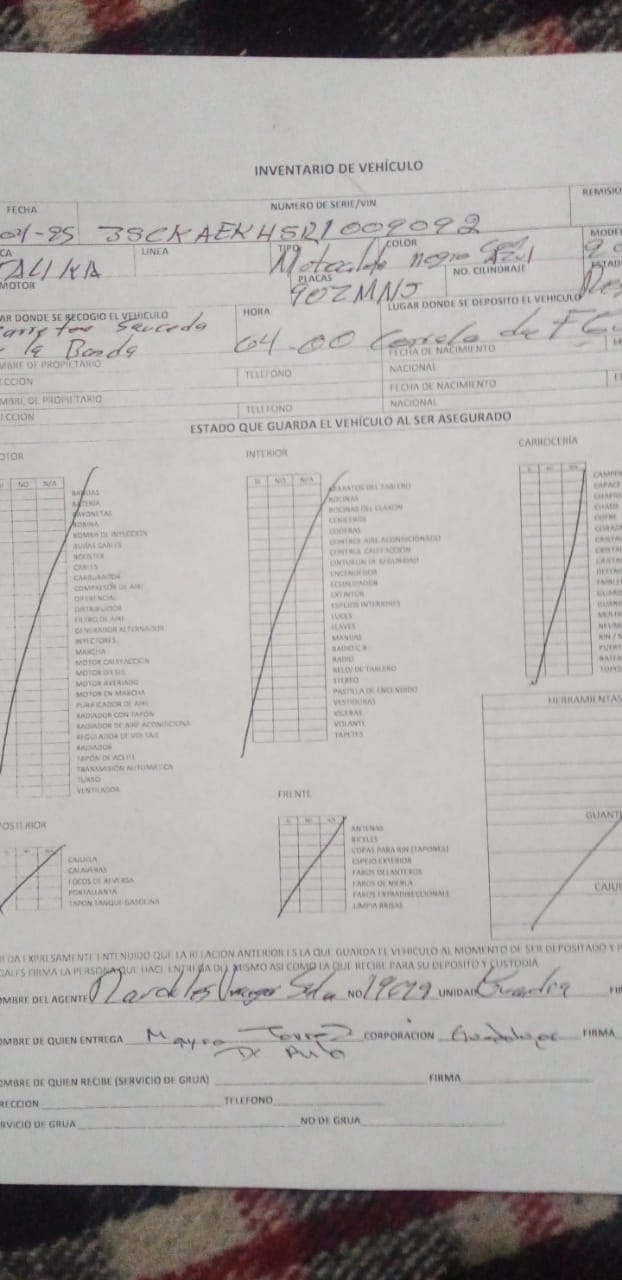 INVENTARIO DE VEHÍCULO
FECHA NUMERO DE SERIE/VIN REMISIO
04-25 3SCKAEKH5R1009092
CA LINEA TIPO COLOR MODE
ALIKA Motocicleta negro con Azul
MOTOR PLACAS NO. CILINDRAJE ESTAD
90ZMNJ
AR DONDE SE RECOGIO EL VEHICULO HORA LUGAR DONDE SE DEPOSITO EL VEHICULO
arretera Sauceda 04-00
la Banda
MBRE DE PROPIETARIO TELEFONO FECHA DE NACIMIENTO
CCION NACIONAL
MBRE DE PROPIETARIO TELEFONO FECHA DE NACIMIENTO
CCION NACIONAL
ESTADO QUE GUARDA EL VEHÍCULO AL SER ASEGURADO
OTOR
SI NO N/A
BANDAS
BATERIA
BAYONETAS
BOBINA
BOMBA DE INYECCIÓN
BUJIAS CABLES
BOOSTER
CABLES
CARBURADOR
COMPRESOR DE AIRE
DIFERENCIAL
DISTRIBUIDOR
FILTRO DE AIRE
GENERADOR ALTERNADOR
INYECTORES
MARCHA
MOTOR CALEFACCION
MOTOR DIESEL
MOTOR AVERIADO
MOTOR EN MARCHA
PURIFICADOR DE AIRE
RADIADOR CON TAPÓN
RADIADOR DE AIRE ACONDICIONA
REGULADOR DE VOLTAJE
RADIADOR
TAPON DE ACEITE
TRANSMISION AUTOMATICA
TURBO
VENTILADOR
INTERIOR
SI NO N/A
APARATOS DEL TABLERO
BOCINAS
BOCINAS DEL CLAXON
CENICEROS
CODERAS
CONTROL AIRE ACONDICIONADO
CONTROL CALEFACCION
CINTURON DE SEGURIDAD
ENCENDEDOR
ECUALIZADOR
EXTINTOR
ESPEJOS INTERIORES
LUCES
LLAVES
MANIJAS
RADIO C.B.
RADIO
RELOJ DE TABLERO
STEREO
PASTILLA DE ENCENDIDO
VESTIDURAS
VICERAS
VOLANTE
TAPETES
CARROCERÍA
CAMPER
CAPACE
CHAPAS
CHASIS
COFRE
CRISTAL
CRISTAL
CRISTAL
DEFEN
EMBLE
GUARD
GUARD
MOLD
NEUM
RIN / M
PUERT
BATEA
TOPES
HERRAMIENTAS
GUANT
CAJU
POSTERIOR
CAJUELA
CALAVERAS
FOCOS DE REVERSA
PORTALLANTA
TAPON TANQUE GASOLINA
FRENTE
ANTENAS
BICELES
COPAS PARA RIN (TAPONES)
ESPEJO EXTERIOR
FAROS DELANTEROS
FAROS DE NIEBLA
FAROS EXTRADIRECCIONALE
LIMPIA BRISAS
EDA EXPRESAMENTE ENTENDIDO QUE LA RELACION ANTERIOR ES LA QUE GUARDA EL VEHICULO AL MOMENTO DE SER DEPOSITADO Y
GALES FIRMA LA PERSONA QUE HACE ENTREGA DEL MISMO ASI COMO LA QUE RECIBE PARA SU DEPOSITO Y CUSTODIA
OMBRE DEL AGENTE NO UNIDAD FIR
OMBRE DE QUIEN ENTREGA Mayra Torres CORPORACION Guadalupe FIRMA
De Avila
OMBRE DE QUIEN RECIBE (SERVICIO DE GRUA) FIRMA
RECCION TELEFONO
RVICIO DE GRUA NO DE GRUA